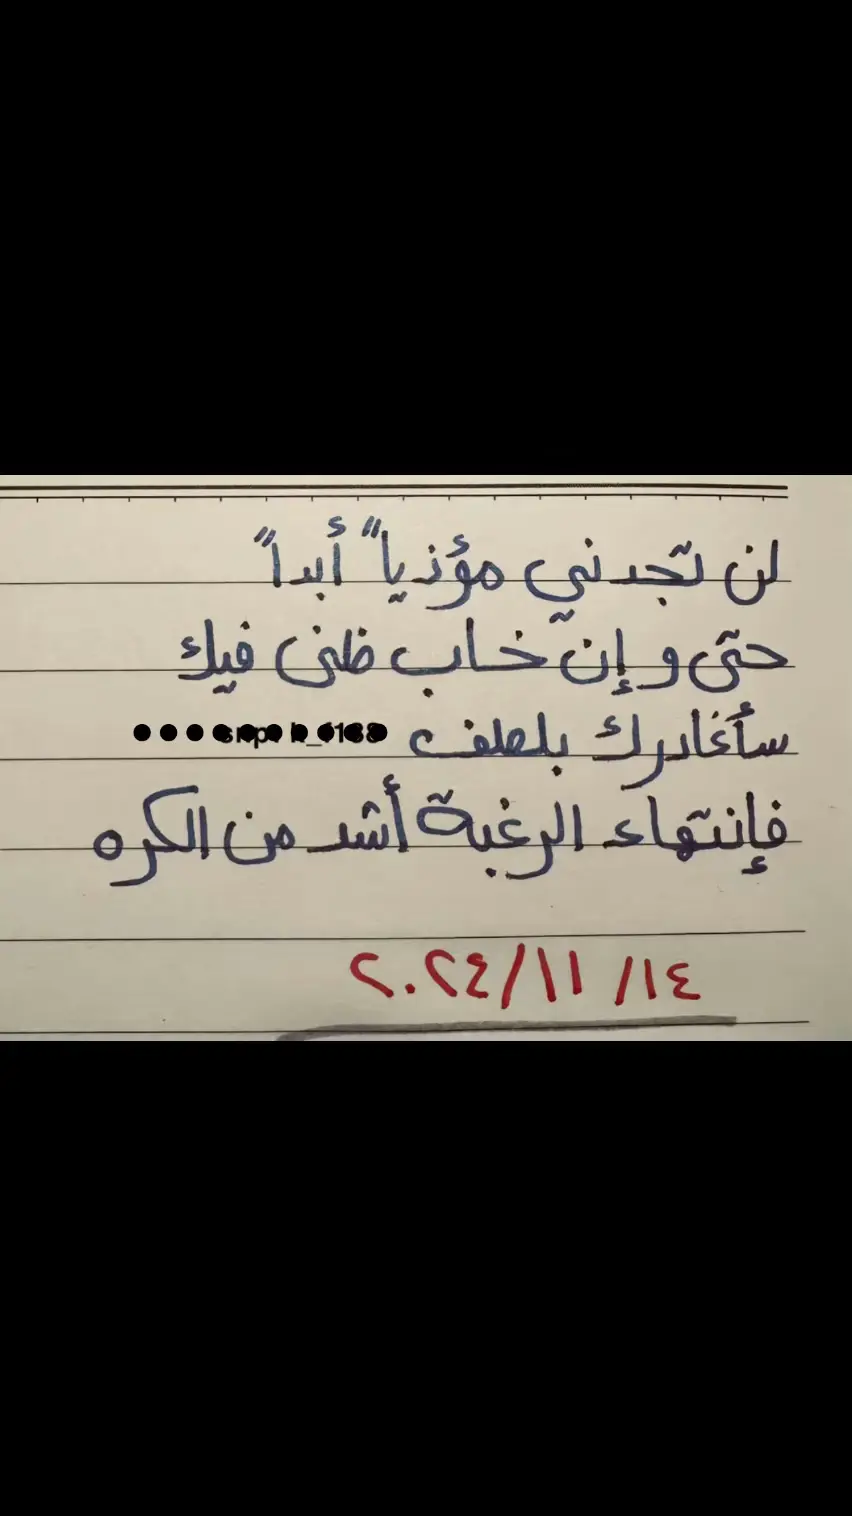 لن تجدني مؤذياً أبداً
حتى وإن خاب ظنى فيك
سأغادرك بلطف
فإنتهاء الرغبة أشد من الكره
١٤/ ١١/ ٢٠٢٤